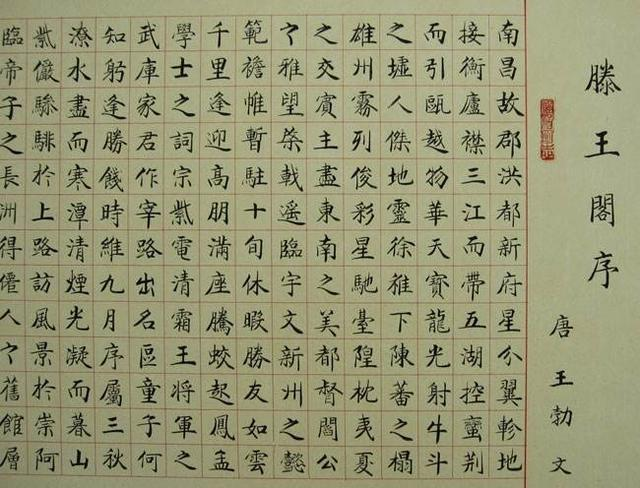 滕王閣序
唐 王勃 文
南昌故郡洪都新府星分翼軫地
接衡廬襟三江而帶五湖控蠻荆
而引甌越物華天寶龍光射牛斗
之墟人傑地靈徐稚下陳蕃之榻
雄州霧列俊彩星馳臺隍枕夷夏
之交賓主盡東南之美都督閻公
之雅望棨戟遥臨宇文新州之懿
範襜帷暫駐十旬休暇勝友如雲
千里逢迎高朋滿座騰蛟起鳳孟
學士之詞宗紫電清霜王將軍之
武庫家君作宰路出名區童子何
知躬逢勝餞時維九月序屬三秋
潦水盡而寒潭清煙光凝而暮山
紫儼驂騑於上路訪風景於崇阿
臨帝子之長洲得僊人之舊館層